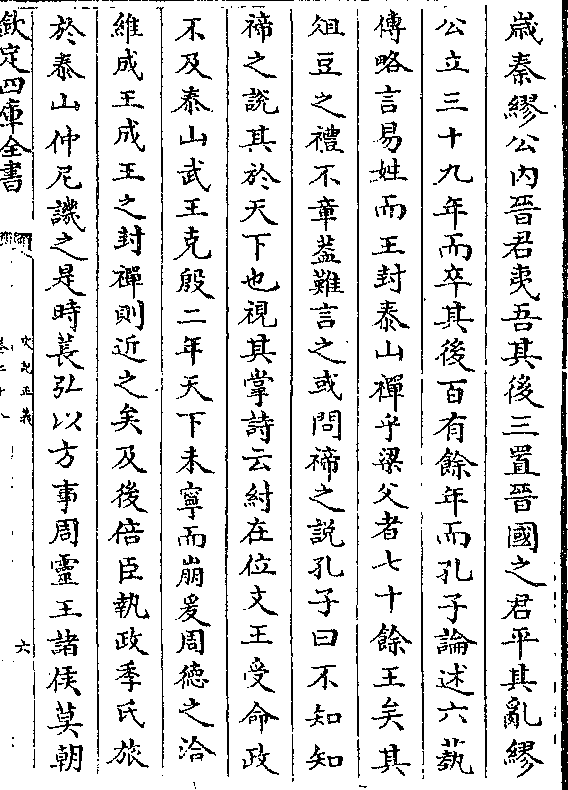 歲秦繆公内晉君夷吾其後三置晉國之君平其亂繆
公立三十九年而卒其後百有餘年而孔子論述六蓺
傳略言易姓而王封泰山禪乎梁父者七十餘王矣其
俎豆之禮不章葢難言之或問禘之説孔子曰不知知
禘之説其於天下也視其掌詩云紂在位文王受命政
不及泰山武王克殷二年天下未寧而崩爰周徳之洽
維成王成王之封禪則近之矣及後倍臣執政季氏旅
於泰山仲尼譏之是時萇弘以方事周靈王諸侯莫朝
欽定四庫全書
史記正義
卷二十八
六